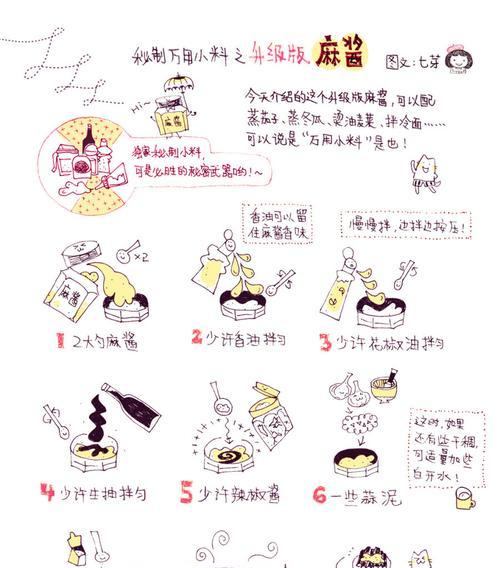 秘制万用小料之升级版麻酱
图文:七芽
Hi~
麻酱
今天介绍的这个升级版麻酱,可以配
蒸茄子、蒸冬瓜、烫油麦菜、拌冷面……
可以说是“万用小料”是也!
独家秘制小料,
可是必胜的秘密武器哟!~
香油可以留
住麻酱香味
慢慢拌,边拌边按压!
×2
麻酱
1 2大勺麻酱
2 少许香油拌匀
3 少许花椒油拌匀
4 少许生抽拌匀
5 少许辣椒酱
6 一些蒜泥
这时,如果
还有些干稠,
可适量加些
白开水!